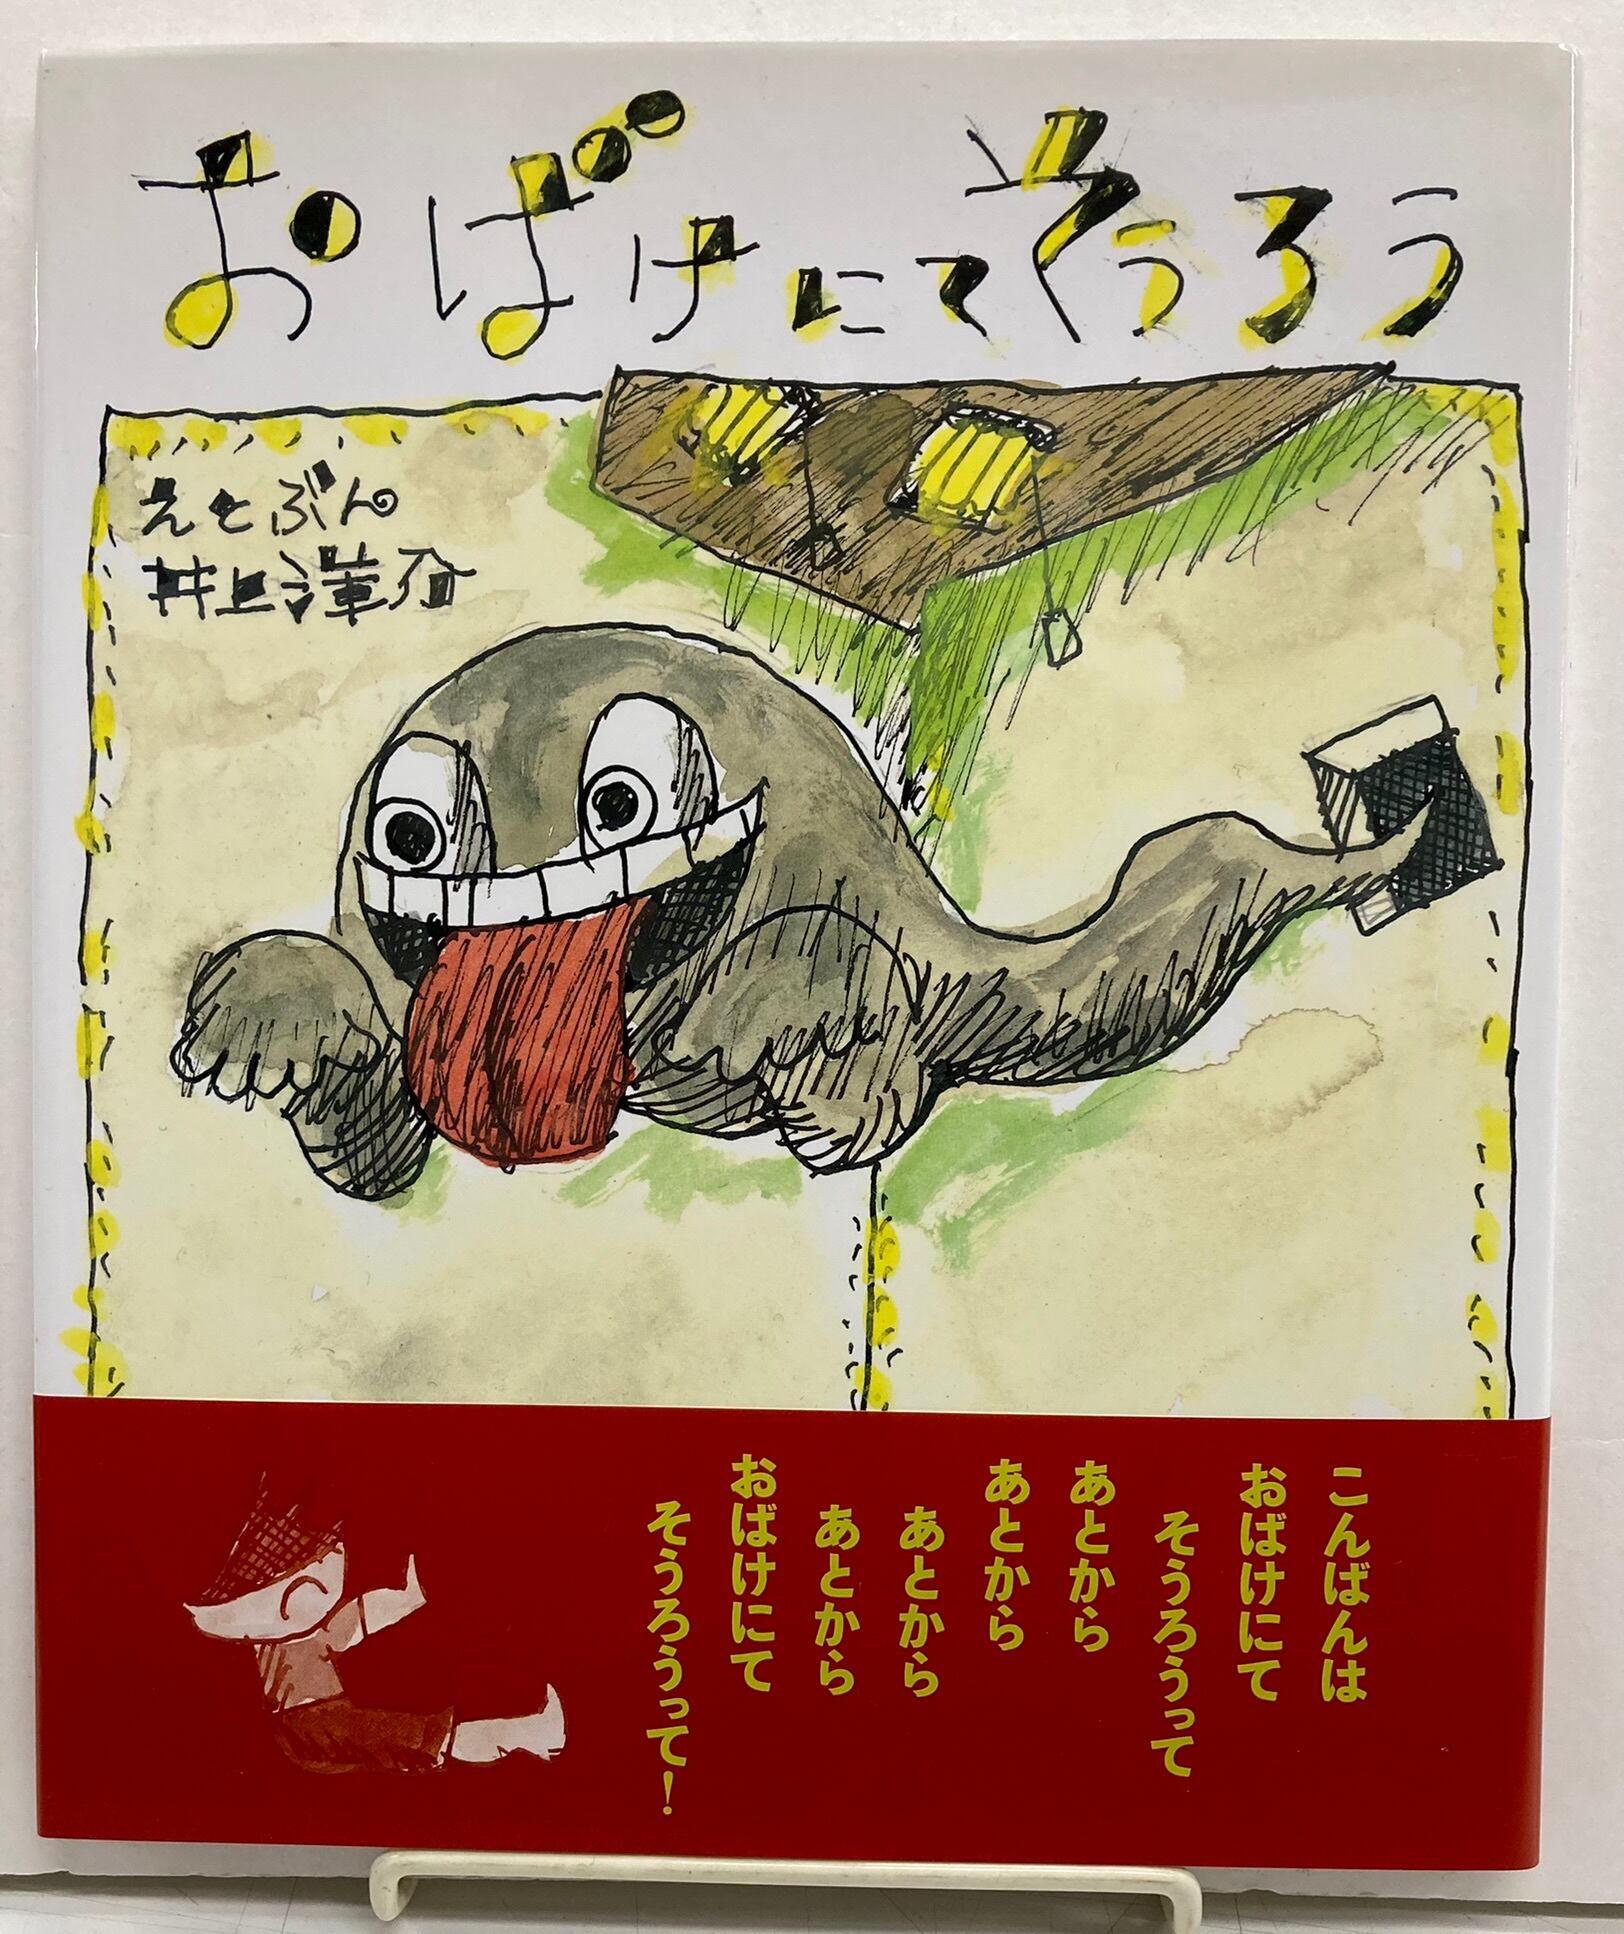 おばけにてそうろう
えとぶん
井上洋介
こんばんは
おばけにて
そうろうって
あとから
あとから
あとから
あとから
おばけにて
そうろうって！